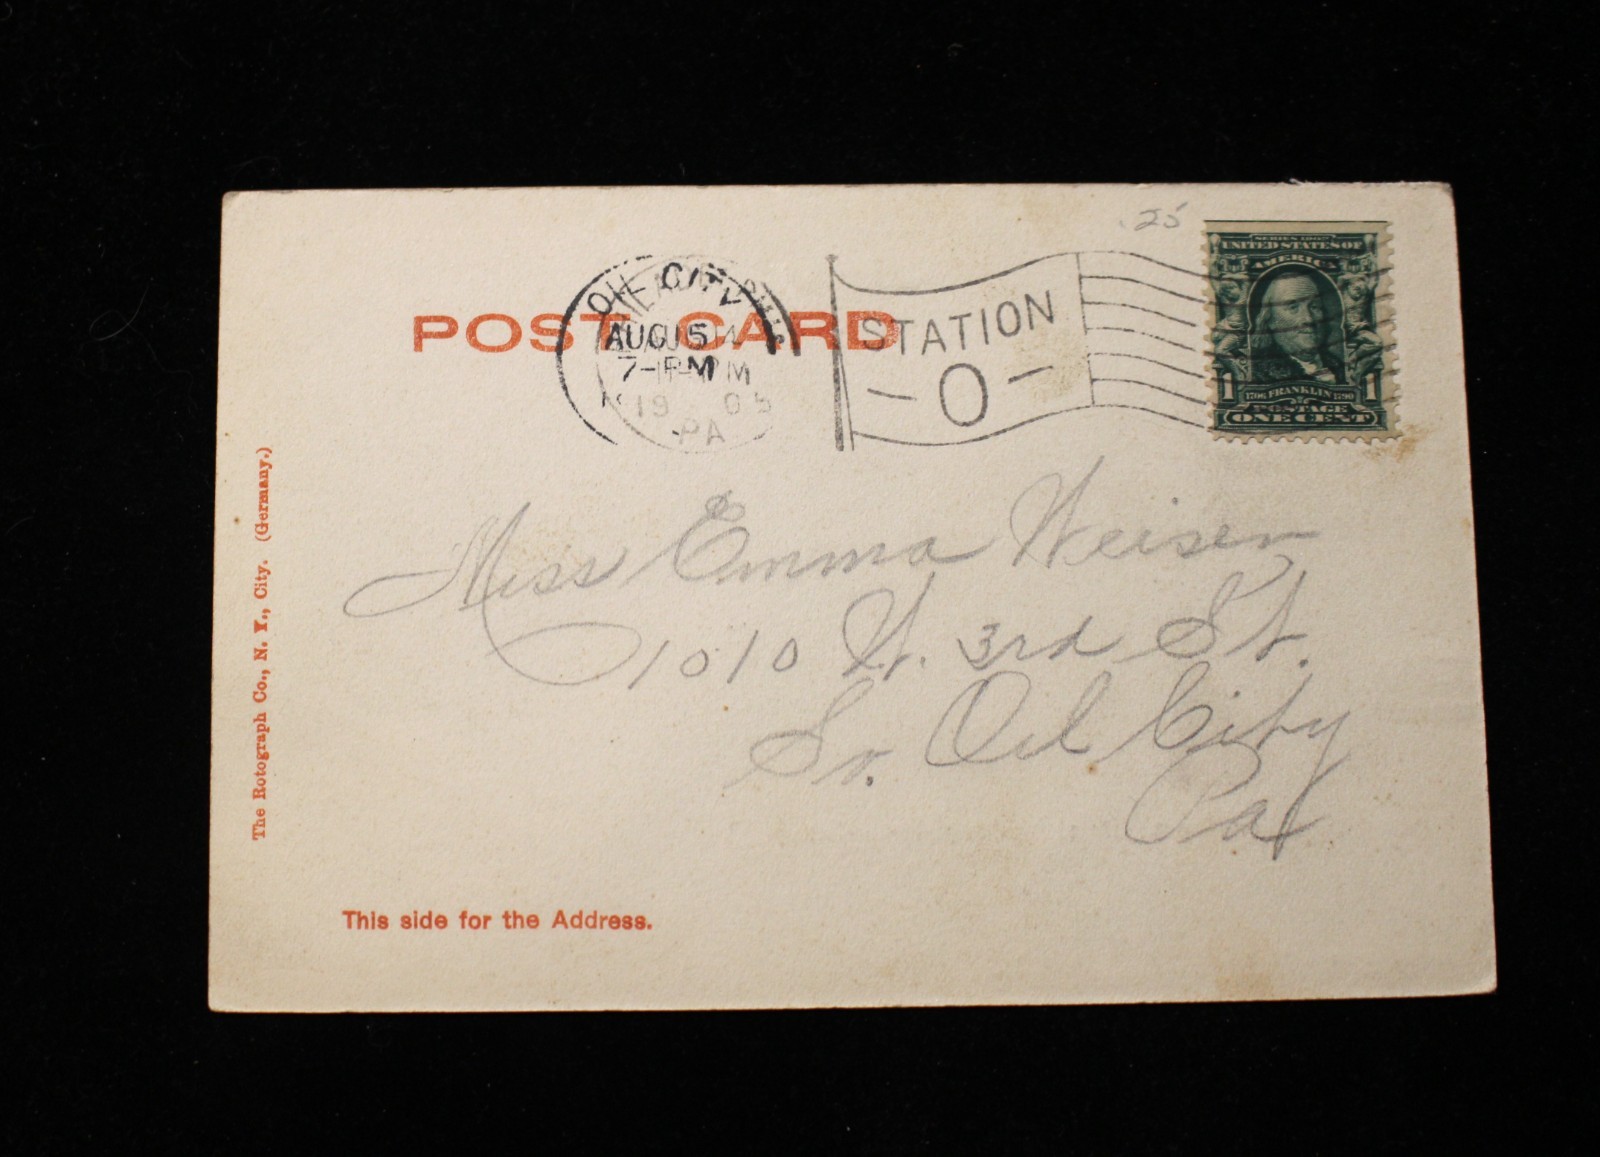 .25
SERIES 1902
UNITED STATES OF
AMERICA
1 1
1706 FRANKLIN 1790
POSTAGE
ONE CENT
POST CARD
OIL CITY
AUG 5
7-PM
PHILADELPHIA
PM
1905
PA
STATION
-O-
Miss Emma Weiser
1010 W. 3rd St.
So. Oil City
Pa
The Rotograph Co., N. Y., City. (Germany.)
This side for the Address.